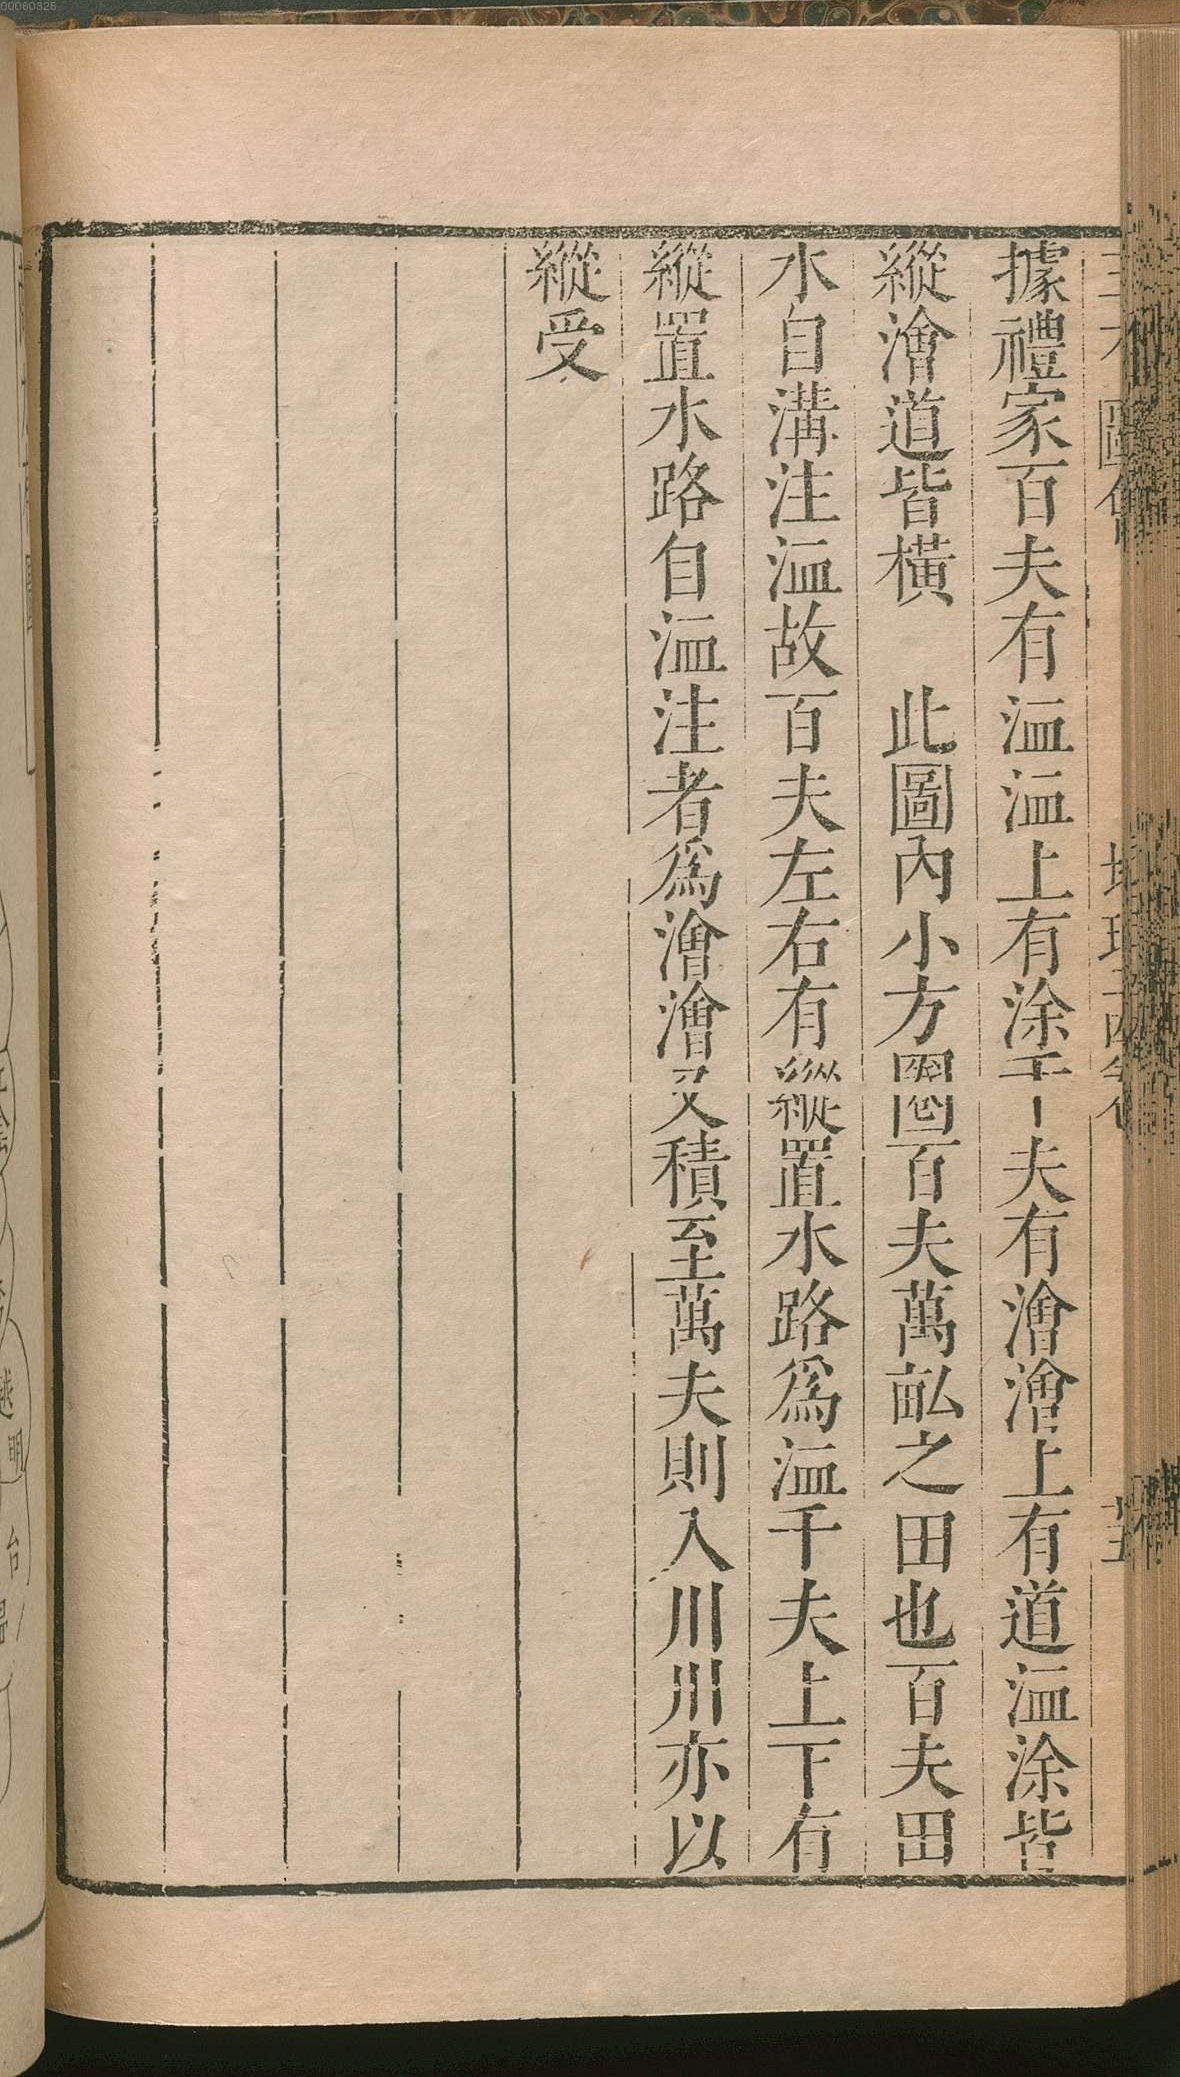 據禮家百夫有洫洫上有涂千夫有澮澮上有道洫涂皆
縱澮道皆橫　此圖內小方圈百夫萬畝之田也百夫田
水自溝注洫故百夫左右有縱置水路爲洫千夫上下有
縱置水路自洫注者爲澮澮又積至萬夫則入川川亦以
縱受
00060326